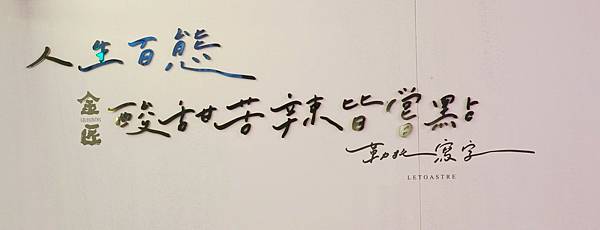 人生百態
金匠 酸甜苦辣皆嘗點
勒托寫字
LETOASTRE